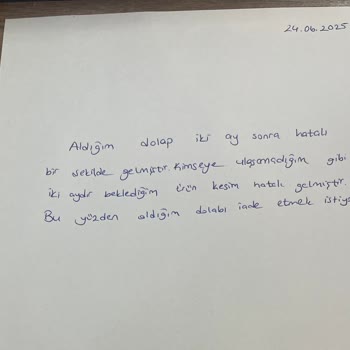 24.06.2025
Aldığım dolap iki ay sonra hatalı
bir şekilde gelmiştir. Kimseye ulaşamadığım gibi
iki aydır beklediğim ürün kesim hatalı gelmiştir.
Bu yüzden aldığım dolabı iade etmek istiyo